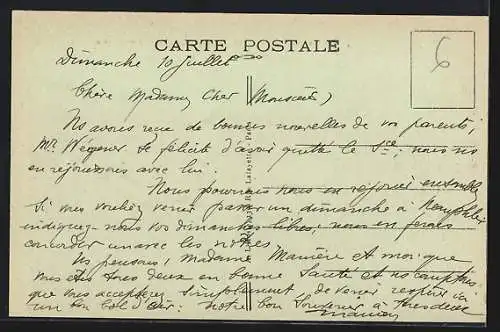 CARTE POSTALE
6
Dimanche 10 Juillet
Chère Madame, Cher Monsieur,
Nous avons reçu de bonnes nouvelles de vos parents,
Mr Wegener se félicite d'avoir quitté le Sre, nous nous
en réjouissons avec lui.
Nous pourrions nous en réjouir ensemble
Si vous vouliez venir passer un dimanche à Neauphle
indiquez-nous vos dimanches libres, nous en ferons
concorder un avec les nôtres,
Vs pensons, Madame Manière et moi, que
vous êtes tous deux en bonne Santé et ns comptons
que vous accepterez simplement de venir respirer ici
un bon bol d'air. Notre bon Souvenir à tous deux
Manière
Rue Lafayette - Paris